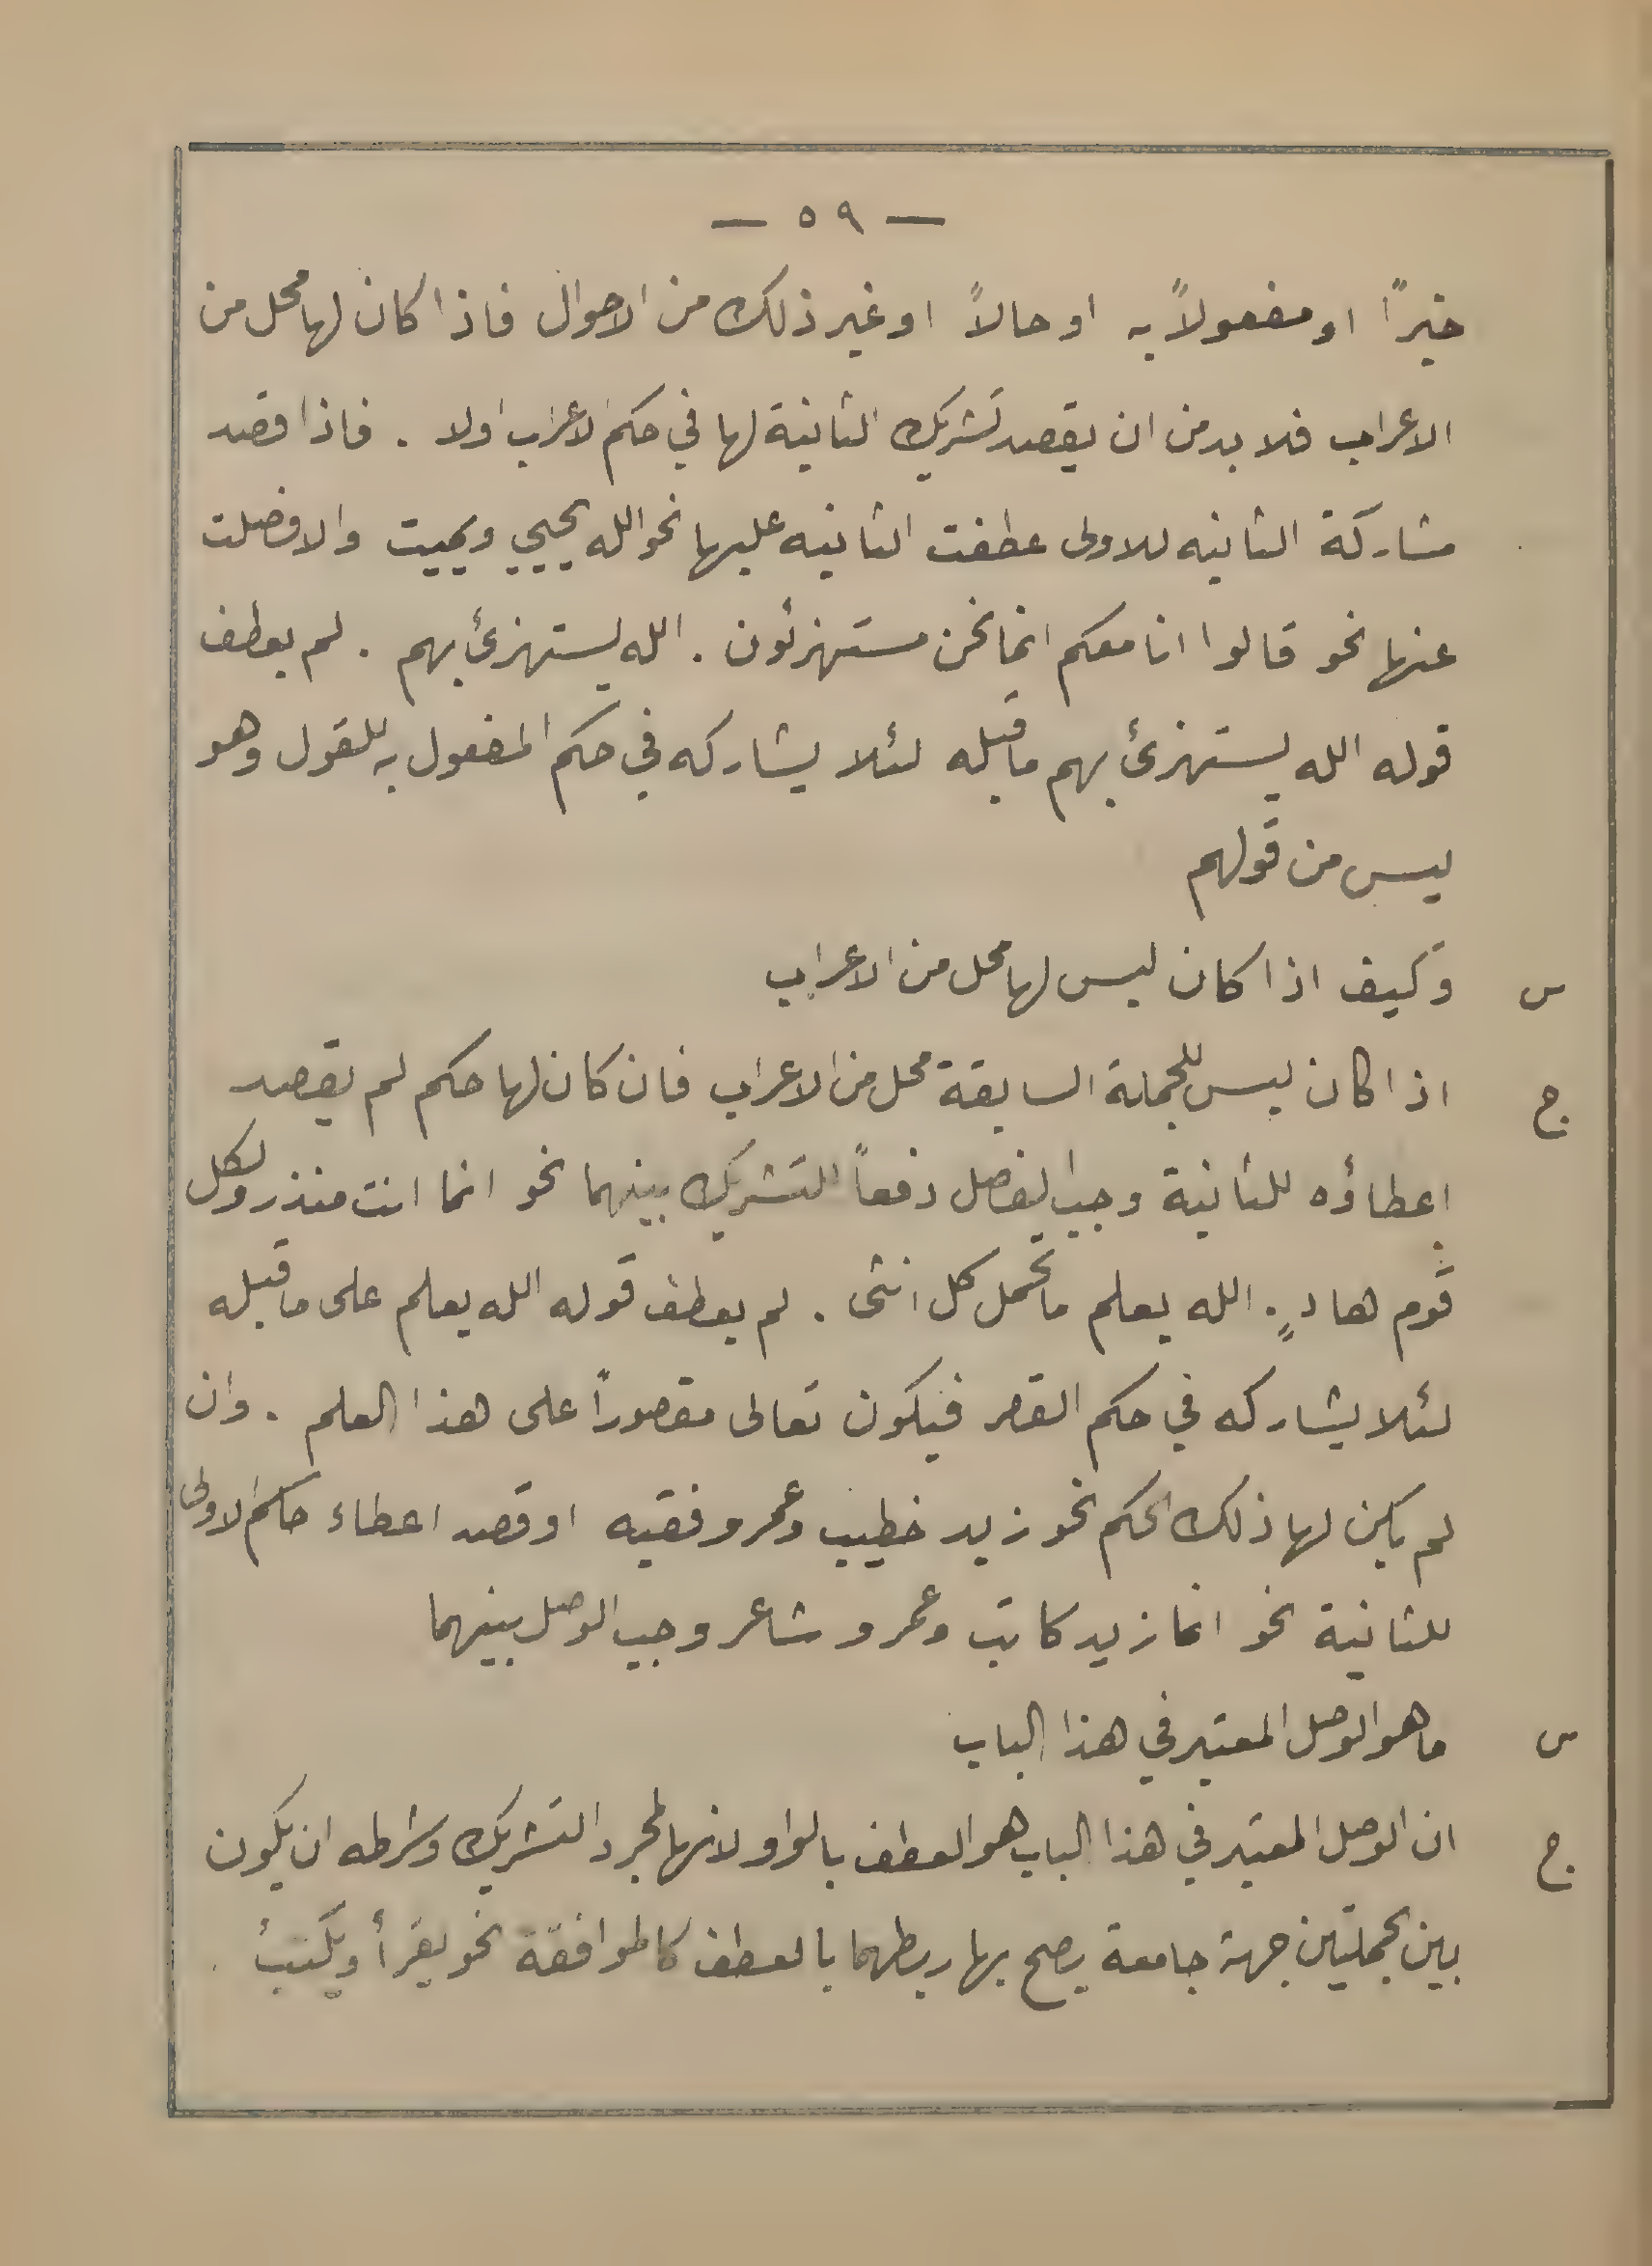 — ٥٩ —
خبراً او مفعولاً به او حالاً او غير ذلك من الاحوال فاذا كان لها محل من
الاعراب فلا بد من ان يقصد تشريك الثانية لها في حكم الاعراب اولا . فاذا قصد
مشاركة الثانيه للاولى عطفت الثانيه عليها نحو الله يحيي ويميت والا فصلت
عنها نحو قالوا انا معكم انما نحن مستهزئون . الله يستهزئ بهم . لم يعطف
قوله الله يستهزئ بهم ما قبله لئلا يشاركه في حكم المفعول به للقول وهو
ليس من قولهم
س وكيف اذا كان ليس لها محل من الاعراب
ج اذا كان ليس للجملة السابقة محل من الاعراب فان كان لها حكم لم يقصد
اعطاؤه للثانية وجب الفصل دفعاً للتشريك بينهما نحو انما انت منذر ولكل
قوم هادٍ . الله يعلم ما تحمل كل انثى . لم يعطف قوله الله يعلم على ما قبله
لئلا يشاركه في حكم القصر فيكون تعالى مقصوراً على هذا العلم . وان
لم يكن لها ذلك الحكم نحو زيد خطيب وعمرو فقيه او قصد اعطاء حكم الاولى
للثانية نحو انما زيد كاتب وعمرو شاعر وجب الوصل بينهما
س ما هو الوصل المعتبر في هذا الباب
ج ان الوصل المعتبر في هذا الباب هو العطف بالواو لانها لمجرد التشريك وشرطه ان يكون
بين الجملتين جهة جامعة يصح بها ربطهما بالعطف كالموافقة نحو يقرأ ويكتب